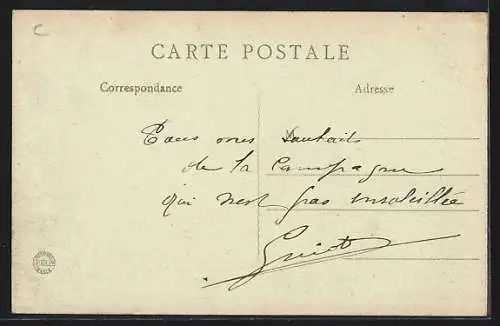 C
CARTE POSTALE
Correspondance
Adresse
Tous mes souhaits
de la campagne
qui n'est pas ensoleillée